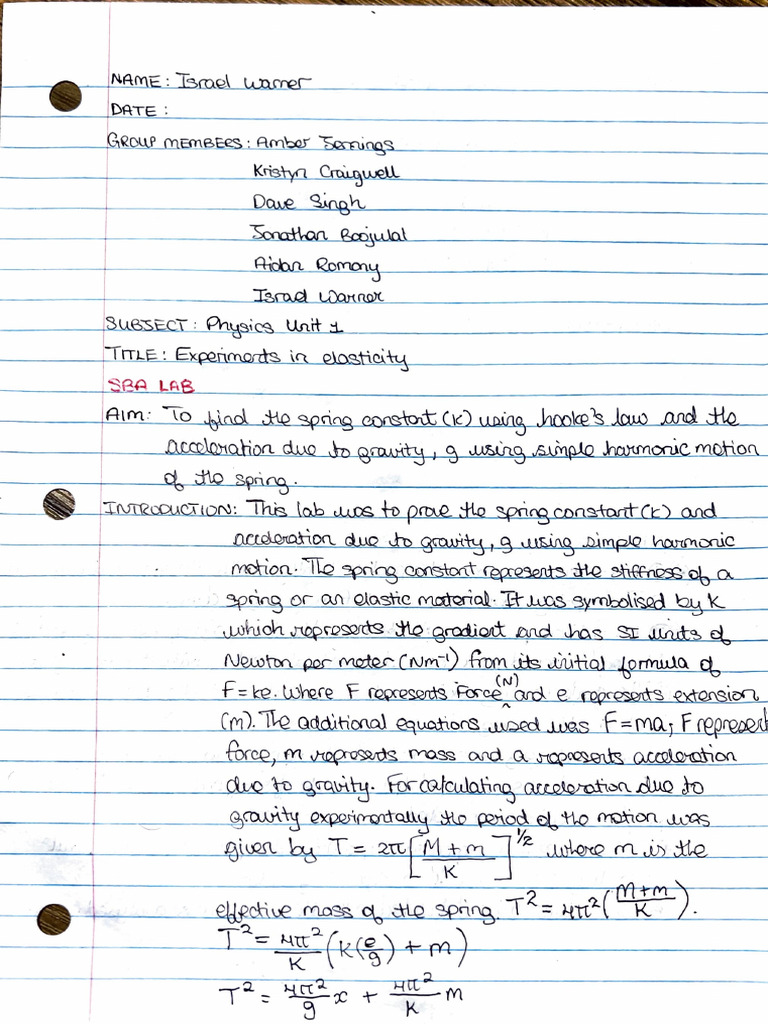 NAME: Israel Warner
DATE:
GROUP MEMBERS: Amber Jennings
Kristyn Craigwell
Dave Singh
Jonathan Boojulal
Aidan Romany
Israel Warner
SUBJECT: Physics Unit 1
TITLE: Experiments in elasticity
SBA LAB
AIM: To find the spring constant (K) using hooke's law and the
acceleration due to gravity, g using simple harmonic motion
of the spring.
INTRODUCTION: This lab was to prove the spring constant (K) and
acceleration due to gravity, g using simple harmonic
motion. The spring constant represents the stiffness of a
spring or an elastic material. It was symbolised by K
which represents the gradient and has SI units of
Newton per meter (Nm⁻¹) from its initial formula of
F = ke. Where F represents Force (N) and e represents extension
(m). The additional equations used was F = ma, F represent
force, m represents mass and a represents acceleration
due to gravity. For calculating acceleration due to
gravity experimentally the period of the motion was
given by T = 2π[(M + m)/K]^1/2 where m is the
effective mass of the spring. T² = 4π²((M+m)/K).
T² = 4π²/K (K(e/g) + m)
T² = 4π²/g x + 4π²/K m